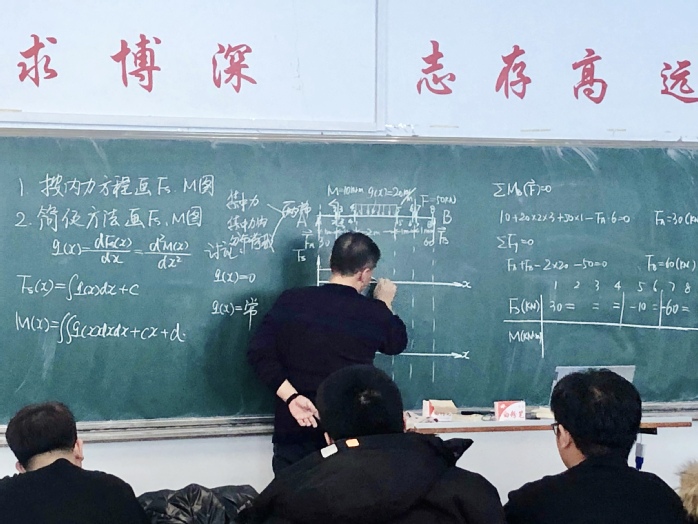 求博深
志存高远
1. 按内力方程画Fs、M图
2. 简便方法画Fs、M图
q(x)=dFs(x)/dx=d²M(x)/dx²
Fs(x)=∫q(x)dx+c
M(x)=∫∫q(x)dxdx+cx+d
讨论
集中力
q(x)=0
q(x)=常
q(x)=20
A
B
x
x
ΣMB(F)=0
10+20×2×3+50×1-FA·6=0
FA=30(
ΣFy=0
FA+FB-2×20-50=0
FB=60(
1 2 3 4 5 6 7 8
Fs(KN) 30 = = = -10 = -60 =
M(KNm)